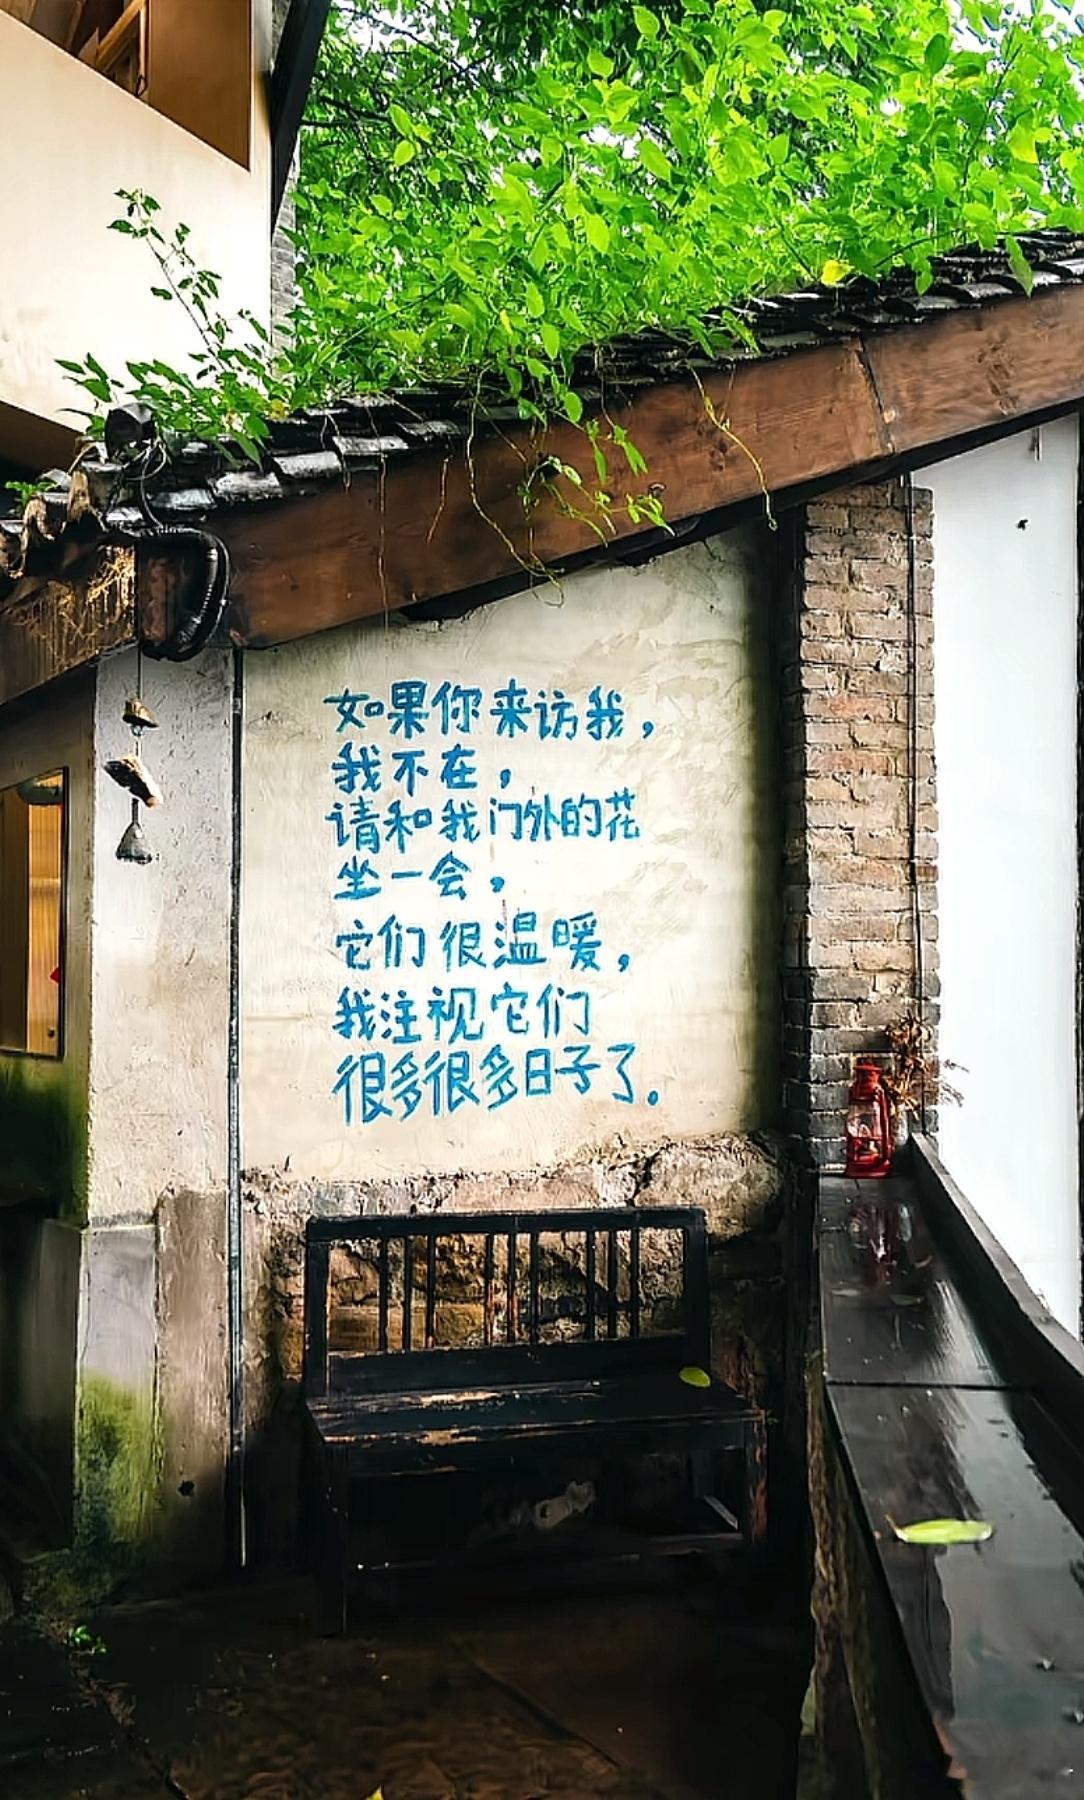 如果你来访我，
我不在，
请和我门外的花
坐一会，
它们很温暖，
我注视它们
很多很多日子了.